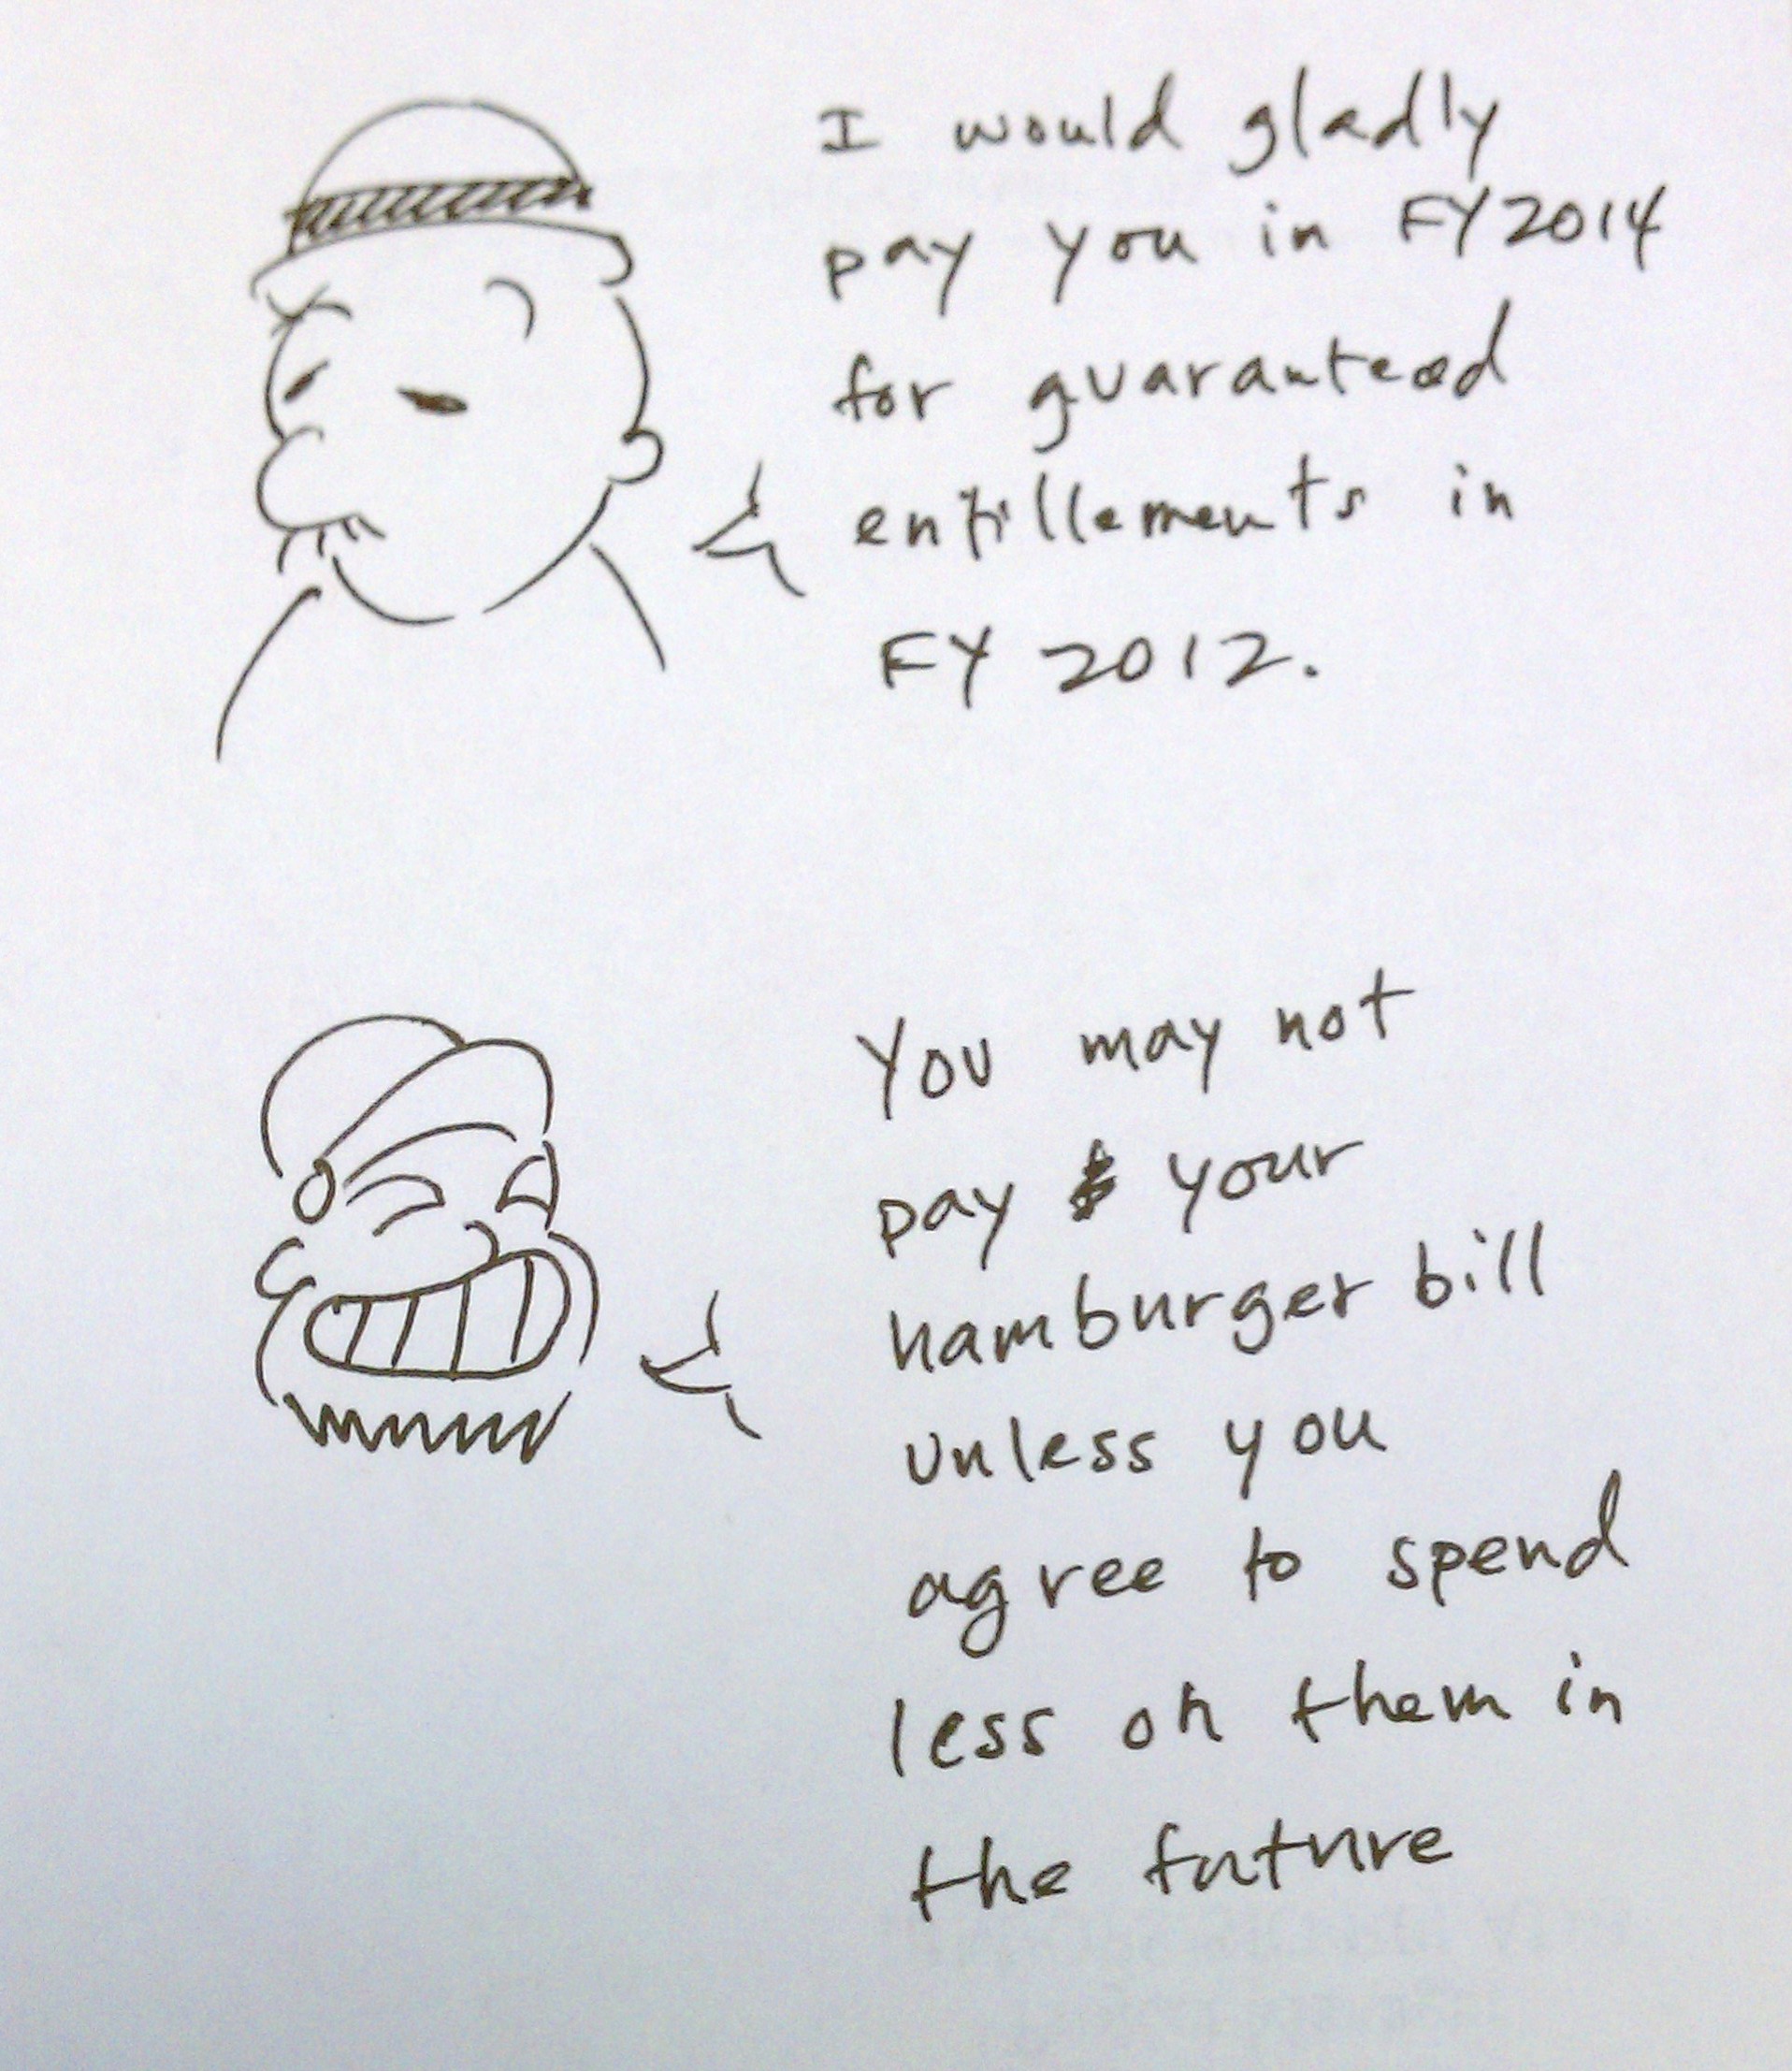 I would gladly
pay you in FY2014
for guaranteed
entillements in
FY 2012.
You may not
pay your
hamburger bill
unless you
agree to spend
less on them in
the future